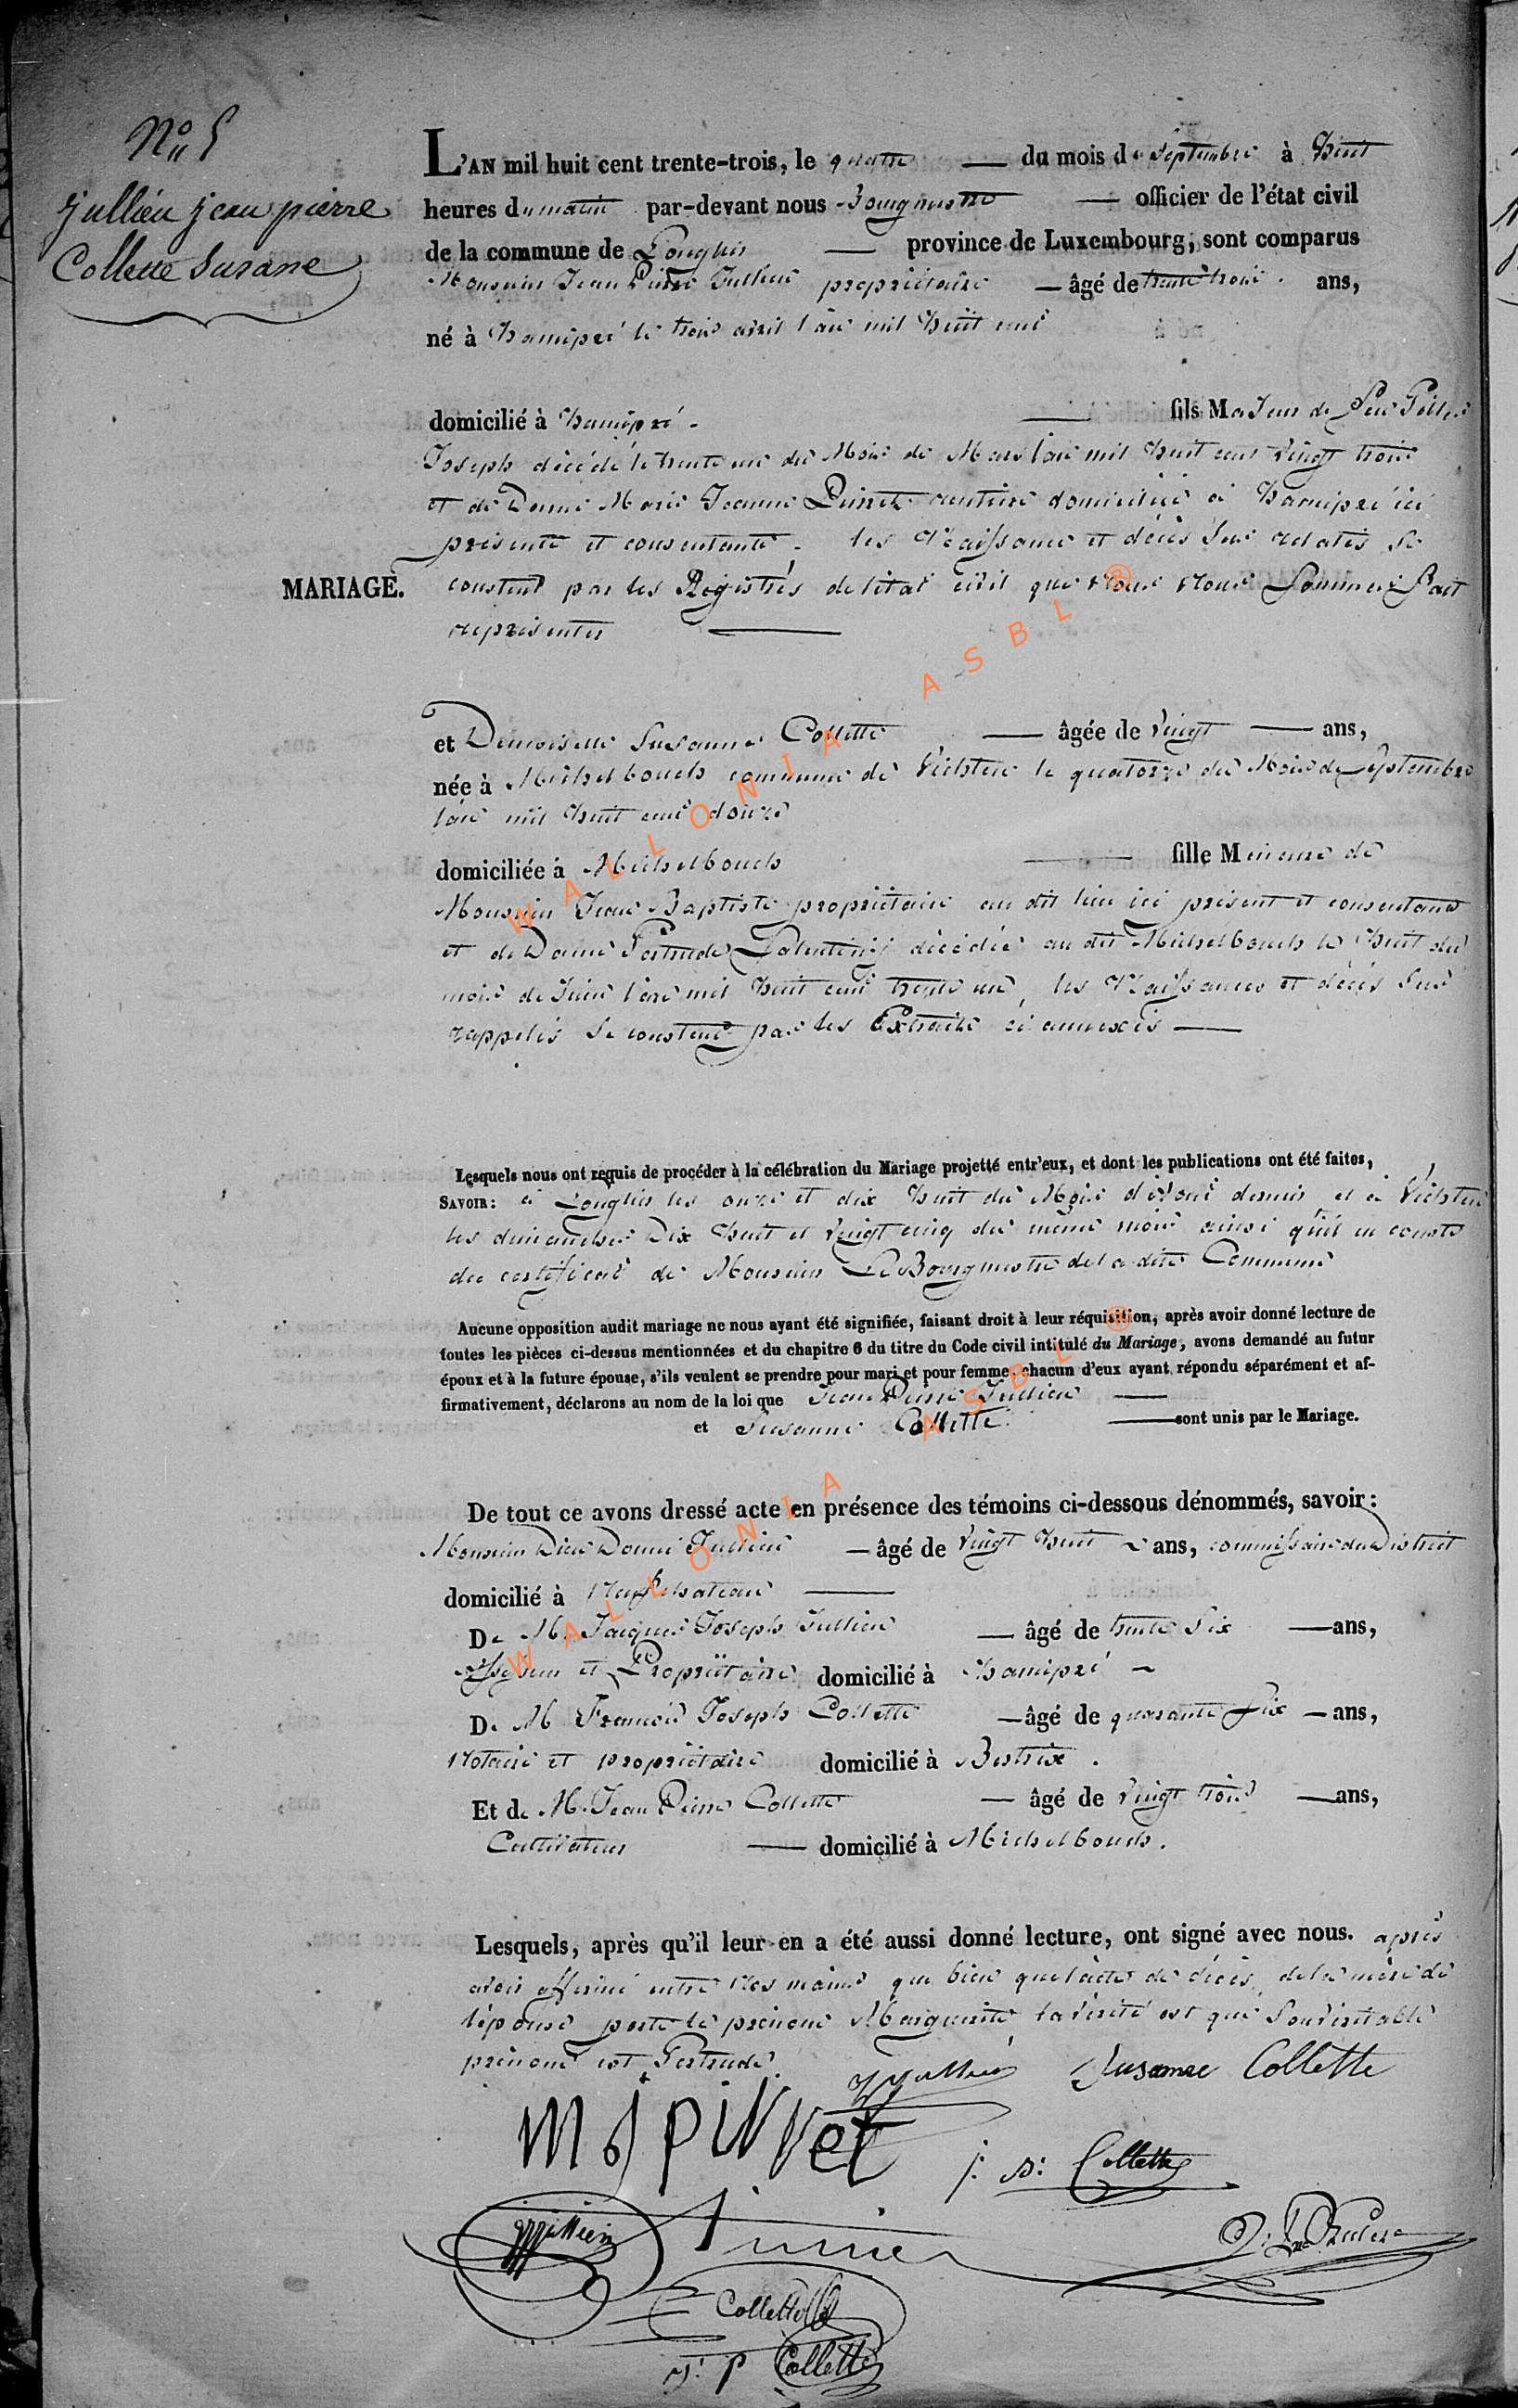 No 5
Jullien jean pierre
Collette Susane
L'AN mil huit cent trente-trois, le quatre du mois de Septembre à huit
heures du matin par-devant nous Bourgmestre officier de l'état civil
de la commune de Longlier province de Luxembourg, sont comparus
Monsieur Jean Pierre Jullien propriétaire âgé de trente trois ans,
né à hamipré le trois avril l'an mil huit cent
domicilié à hamipré fils Majeur de feu
Joseph décédé le trente un du Mois de Mars l'an mil huit cent vingt trois
et de Dame Marie Jeanne Pirret rentière domiciliée à hamipré ici
présente et consentante. les Naissance et décès sus relatés se
MARIAGE.
constent par les Régistres de l'état civil que Nous Nous Sommes fait
représenter
et Demoiselle Susanne Collette âgée de vingt ans,
née à Michelbouch commune de Vichten le quatorze du Mois de Septembre
l'an mil huit cent douze
domiciliée à Michelbouch fille Mineure de
Monsieur Jean Baptiste propriétaire au dit lieu ici présent et consentant
et de Dame Gertrude décédée au dit Michelbouch le huit du
mois de Juin l'an mil huit cent trente un, les Naissances et décès sus
rappelés se constent par les Extraits ci annexés
Lesquels nous ont requis de procéder à la célébration du Mariage projetté entr'eux, et dont les publications ont été faites,
SAVOIR: à Longlier les onze et dix huit du Mois d'Août dernier et à Vichten
les dimanches Dix huit et vingt cinq du même mois ainsi qu'il en conste
du certificat de Monsieur Le Bourgmestre de la dite Commune
Aucune opposition audit mariage ne nous ayant été signifiée, faisant droit à leur réquisition, après avoir donné lecture de
toutes les pièces ci-dessus mentionnées et du chapitre 6 du titre du Code civil intitulé du Mariage, avons demandé au futur
époux et à la future épouse, s'ils veulent se prendre pour mari et pour femme, chacun d'eux ayant répondu séparément et af-
firmativement, déclarons au nom de la loi que Jean Pierre Jullien
et Susanne Collette sont unis par le Mariage.
De tout ce avons dressé acte en présence des témoins ci-dessous dénommés, savoir:
Monsieur Dieu Donné Jullien âgé de vingt huit ans, commissaire du District
domicilié à Neufchateau
De M. Jacques Joseph Jullien âgé de trente Six ans,
Assesseur et Propriétaire domicilié à hamipré
De M François Joseph Collette âgé de quarante Six ans,
Notaire et propriétaire domicilié à Bertrix.
Et de M. Jean Pierre Collette âgé de vingt trois ans,
Cultivateur domicilié à Michelbouch.
Lesquels, après qu'il leur en a été aussi donné lecture, ont signé avec nous. après
avoir affirmé entre Nos mains que bien que l'acte de décès de la mère de
l'épouse porte le prénom Marguerite la vérité est que Son véritable
prénom est Gertrude.
Susanne Collette
m j pirret
j: b: Collette
Collette
J: P Collette
WALLONIA ASBL ®
WALLONIA ASBL ®